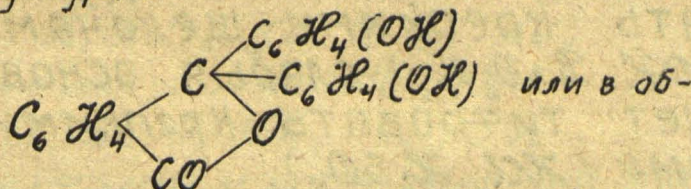 C₆H₄(OH)
C C₆H₄(OH) или в об-
C₆H₄ O
CO